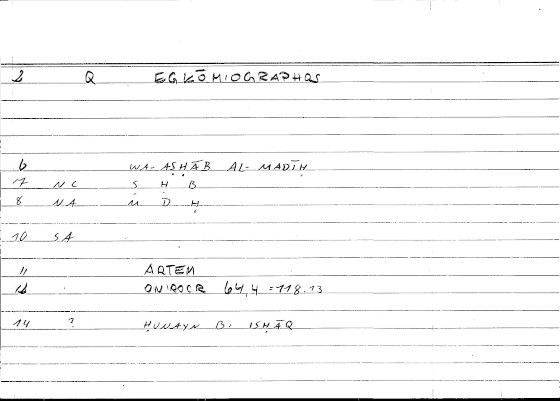 2 Q EGKŌMIOGRAPHOS
6 WA-AṢḤĀB AL-MADĪḤ
7 NC Ṣ Ḥ B
8 NA M D Ḥ
10 SA
11 ARTEM
12 ONIROCR 64,4 =118.13
14 ? ḤUNAYN B. ISḤĀQ